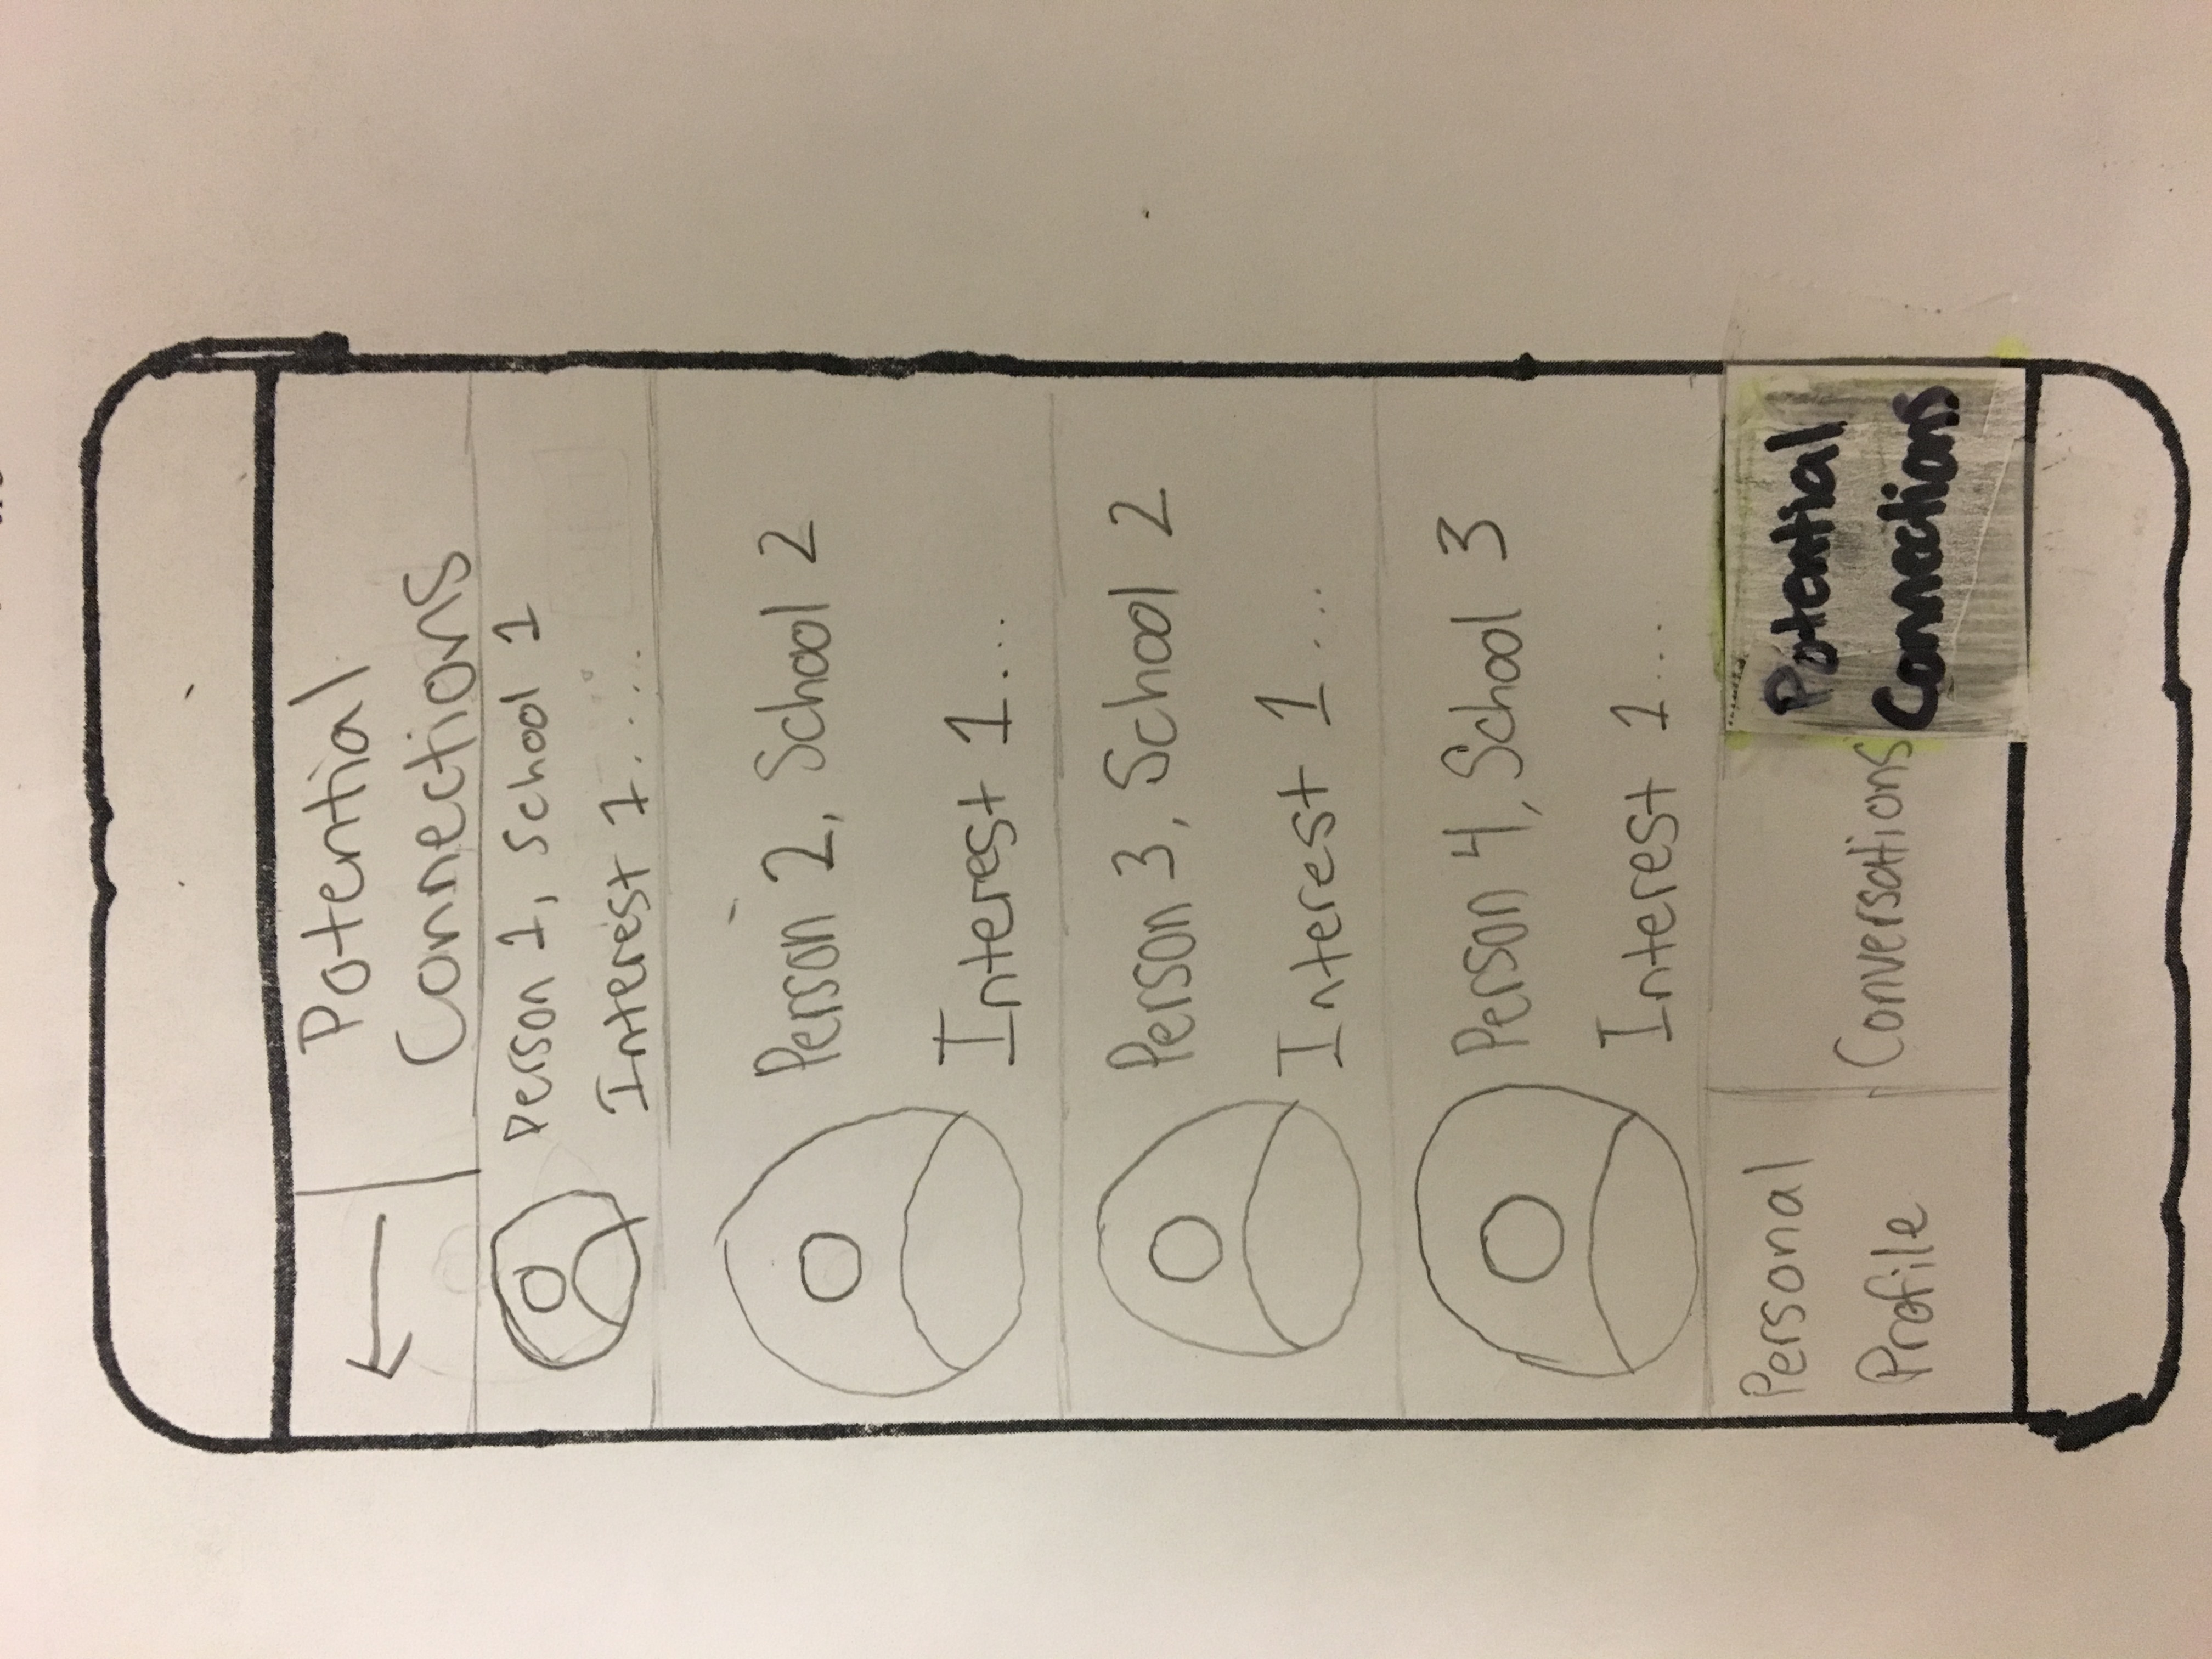 Potential
Connections
Person 1, School 1
Interest 1.....
Person 2, School 2
Interest 1...
Person 3, School 2
Interest 1...
Person 4, School 3
Interest 1....
Personal
Profile
Conversations
Potential
Connections